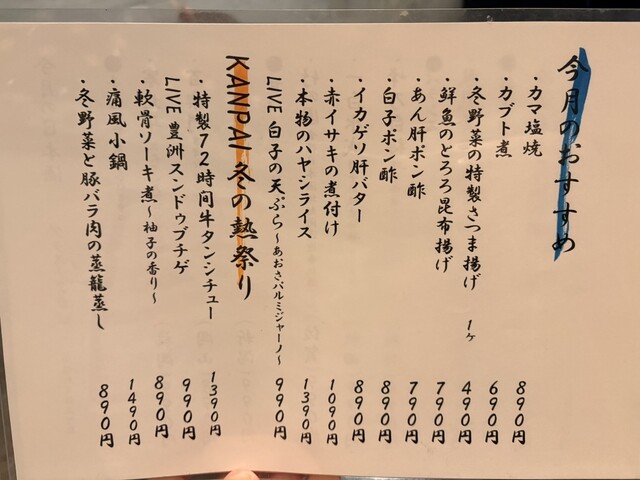 今月のおすすめ
・カマ塩焼 890円
・カブト煮 690円
・冬野菜の特製さつま揚げ 1ヶ 490円
・鮮魚のとろろ昆布揚げ 790円
・あん肝ポン酢 790円
・白子ポン酢 890円
・イカゲソ肝バター 890円
・赤イサキの煮付け 1090円
・本物のハヤシライス 1390円
LIVE 白子の天ぷら〜あおさパルミジャーノ〜 990円
KANPAI 冬の熱祭り
・特製72時間牛タンシチュー 1390円
LIVE 豊洲スンドゥブチゲ 990円
・軟骨ソーキ煮〜柚子の香り〜 890円
・痛風小鍋 1490円
・冬野菜と豚バラ肉の蒸籠蒸し 890円